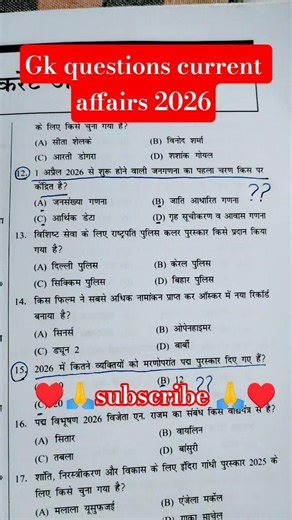 Gk questions current
affairs 2026
के लिए किसे चुना गया है?
(A) सीता शेलके (B) विनोद शर्मा
(C) आरती डोगरा (D) शशांक गोयल
12. 1 अप्रैल 2026 से शुरू होने वाली जनगणना का पहला चरण किस पर
केंद्रित है? ??
(A) जनसंख्या गणना (B) जाति आधारित गणना
(C) आर्थिक डेटा (D) गृह सूचीकरण व आवास गणना
13. विशिष्ट सेवा के लिए राष्ट्रपति पुलिस कलर पुरस्कार किसे प्रदान किया
गया है?
(A) दिल्ली पुलिस (B) केरल पुलिस
(C) सिक्किम पुलिस (D) बिहार पुलिस
14. किस फिल्म ने सबसे अधिक नामांकन प्राप्त कर ऑस्कर में नया रिकॉर्ड
बनाया है?
(A) सिनर्स (B) ओपेनहाइमर
(C) ड्यून 2 (D) बार्बी
15. 2026 में कितने व्यक्तियों को मरणोपरांत पद्म पुरस्कार दिए गए हैं?
(B) 12 ??
♥️🙏subscribe🙏♥️
20
16. पद्म विभूषण 2026 विजेता एन. राजम का संबंध किस वाद्ययंत्र से है?
(A) सितार (B) वायलिन
(C) तबला (D) बांसुरी
17. शांति, निरस्त्रीकरण और विकास के लिए इंदिरा गांधी पुरस्कार 2025 के
लिए किसे चुना गया है?
(A) मलाला यूसुफजई (B) एंजेला मर्केल